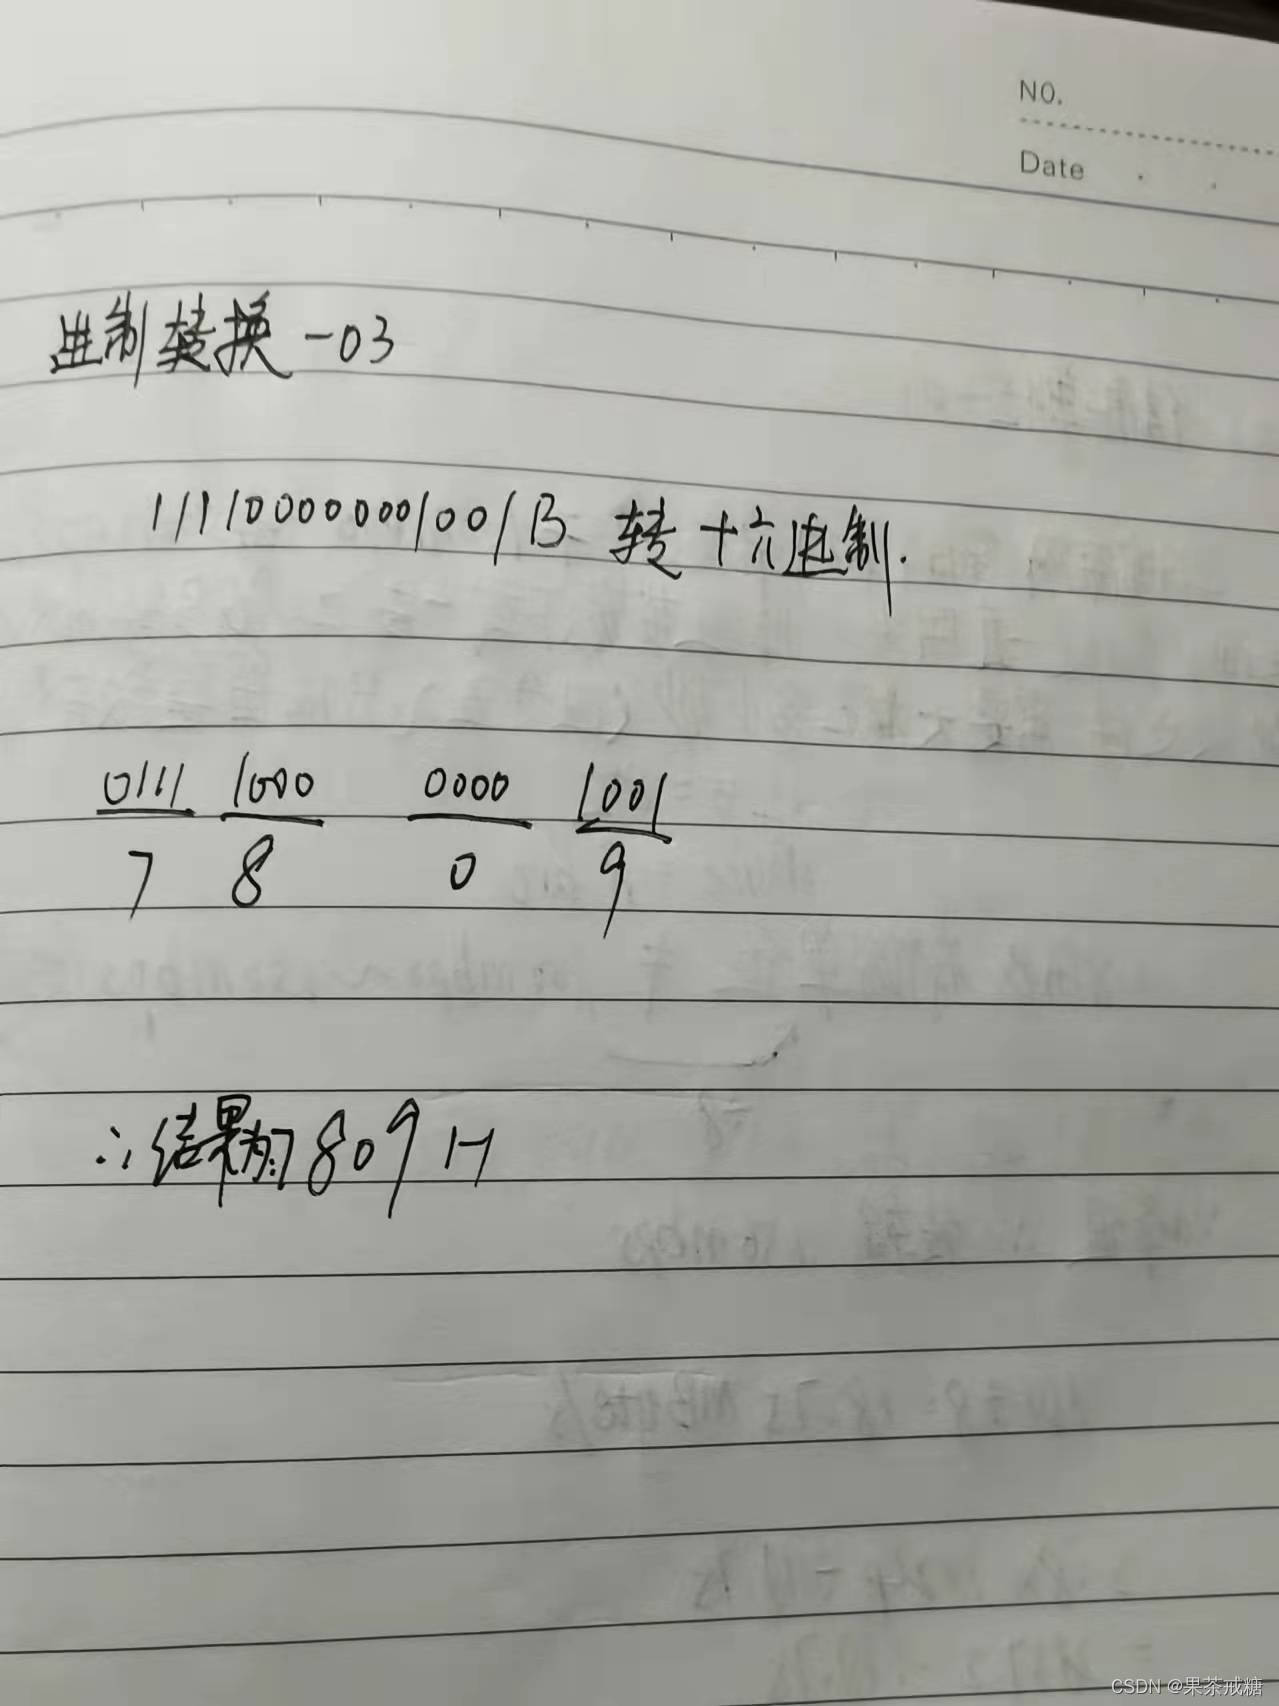 NO.
Date
进制转换-03
111100000001001B 转十六进制.
0111 1000 0000 1001
7 8 0 9
∴结果为:7809H
CSDN @果茶戒糖